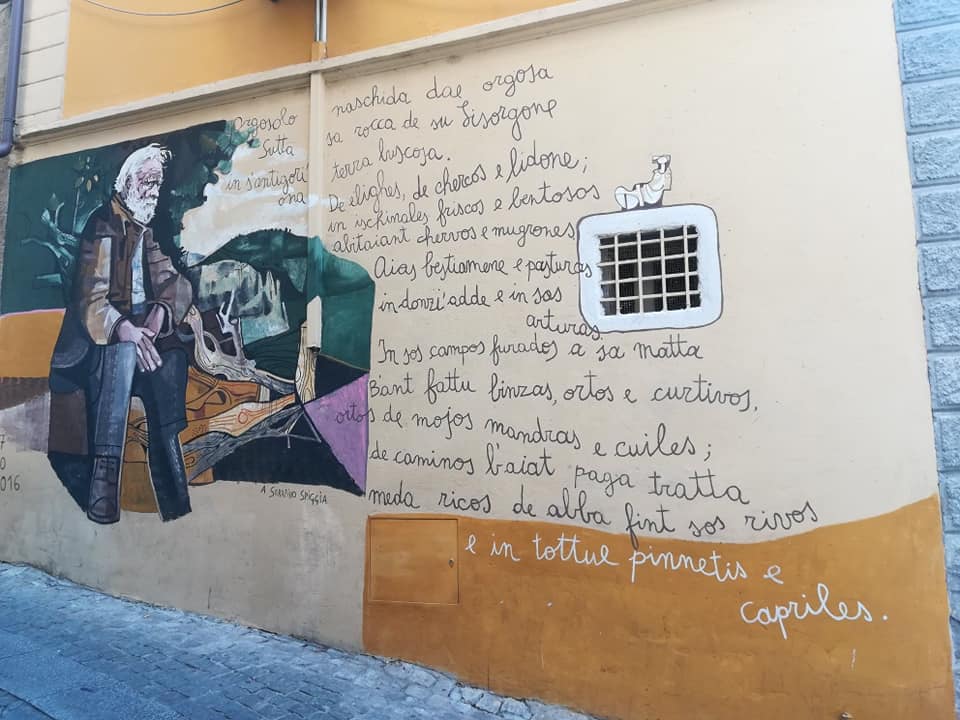 Orgosolo
Sutta
in s'antigori'
ona
naschida dae orgosa
sa rocca de su Lisorgone
terra buscosa.
De elighes, de chercos e lidone;
in ischinales friscos e bentosos
abitaiant chervos e mugrones
Aias bestiamene e pasturas
in donzi'adde e in sas
arturas.
In sos campos furados a sa matta
B'ant fattu binzas, ortos e curtivos,
ortos de mojos mandras e cuiles;
de caminos b'aiat paga tratta
meda ricos de abba fint sos rivos
e in tottue pinnetis e
capriles.
A SERAFINO SPIGGIA
7
0
016